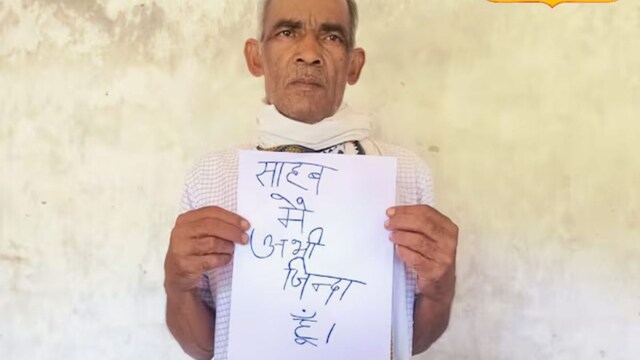 साहब
मै
अभी
जिन्दा
हूँ।